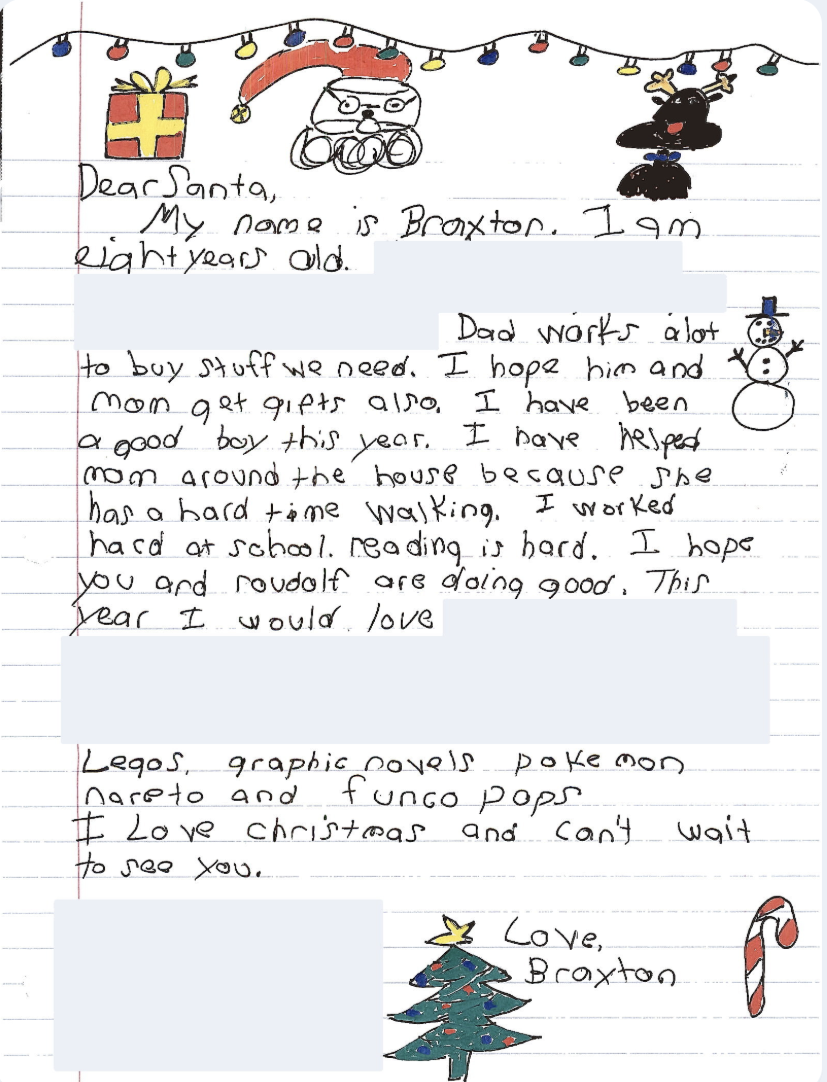 Dear Santa,
My name is Braxton. I am
eight years old.
Dad works alot
to buy stuff we need. I hope him and
mom get gifts also. I have been
a good boy this year. I have helped
mom around the house because she
has a hard time walking. I worked
hard at school. reading is hard. I hope
you and roudolf are doing good. This
year I would love
Legos, graphic novels pokemon
nareto and funco pops
I Love christmas and can't wait
to see you.
Love,
Braxton